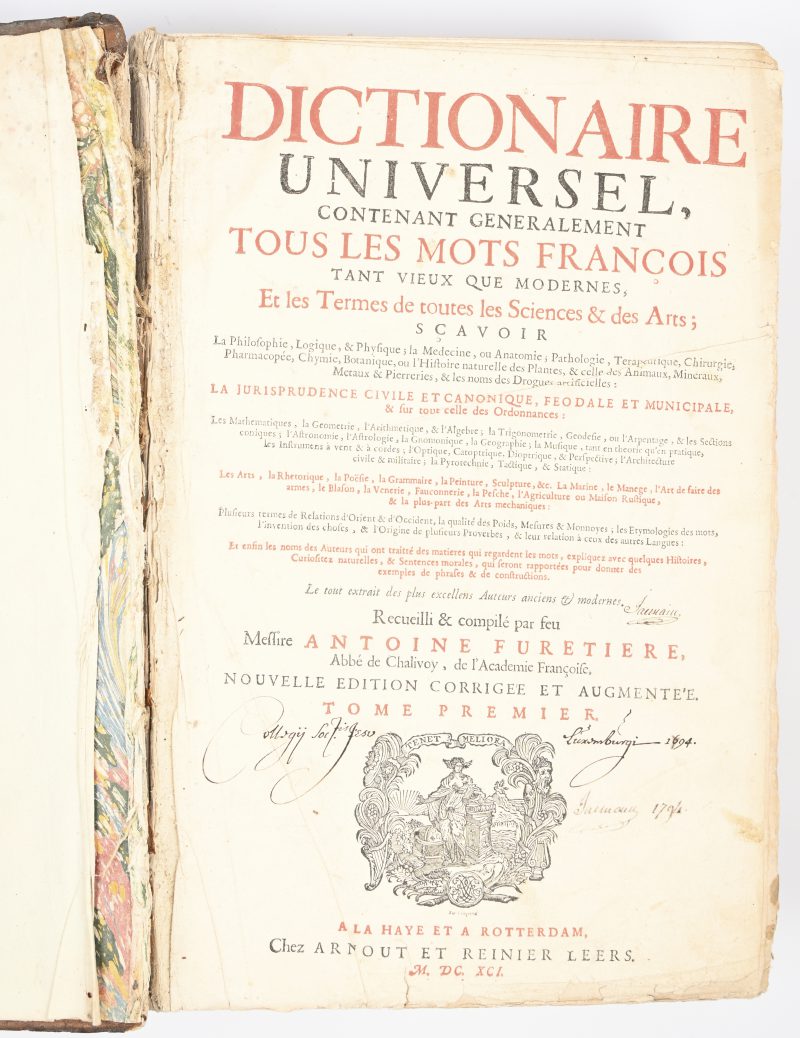 DICTIONAIRE
UNIVERSEL,
CONTENANT GENERALEMENT
TOUS LES MOTS FRANÇOIS
TANT VIEUX QUE MODERNES,
Et les Termes de toutes les Sciences & des Arts;
SÇAVOIR
La Philosophie, Logique, & Physique; la Medecine, ou Anatomie; Pathologie, Terapeutique, Chirurgie,
Pharmacopée, Chymie, Botanique, ou l'Histoire naturelle des Plantes, & celle des Animaux, Mineraux,
Metaux & Pierreries, & les noms des Drogues artificielles:
LA JURISPRUDENCE CIVILE ET CANONIQUE, FEODALE ET MUNICIPALE,
& sur tout celle des Ordonnances:
Les Mathematiques, la Geometrie, l'Arithmetique, & l'Algebre; la Trigonometrie, Geodesie, ou l'Arpentage, & les Sections
coniques; l'Astronomie, l'Astrologie, la Gnomonique, la Geographie; la Musique, tant en theorie qu'en pratique,
les Instrumens à vent & à cordes; l'Optique, Catoptrique, Dioptrique, & Perspective; l'Architecture
civile & militaire; la Pyrotechnie, Tactique, & Statique:
Les Arts, la Rhetorique, la Poësie, la Grammaire, la Peinture, Sculpture, &c. La Marine, le Manege, l'Art de faire des
armes, le Blason, la Venerie, Fauconnerie, la Pesche, l'Agriculture ou Maison Rustique,
& la plus-part des Arts mechaniques:
Plusieurs termes de Relations d'Orient & d'Occident, la qualité des Poids, Mesures & Monnoyes; les Etymologies des mots,
l'invention des choses, & l'Origine de plusieurs Proverbes, & leur relation à ceux des autres Langues:
Et enfin les noms des Auteurs qui ont traitté des matieres qui regardent les mots, expliquez avec quelques Histoires,
Curiositez naturelles, & Sentences morales, qui seront rapportées pour donner des
exemples de phrases & de constructions.
Le tout extrait des plus excellens Auteurs anciens & modernes.
Recueilli & compilé par feu
Messire ANTOINE FURETIERE,
Abbé de Chalivoy, de l'Academie Françoise.
NOUVELLE EDITION CORRIGEE ET AUGMENTÉE.
TOME PREMIER.
Collegij Soctis Jesu Luxemburgi 1694.
TENET MELIORA
1794
A LA HAYE ET A ROTTERDAM,
Chez ARNOUT ET REINIER LEERS.
M. DC. XCI.